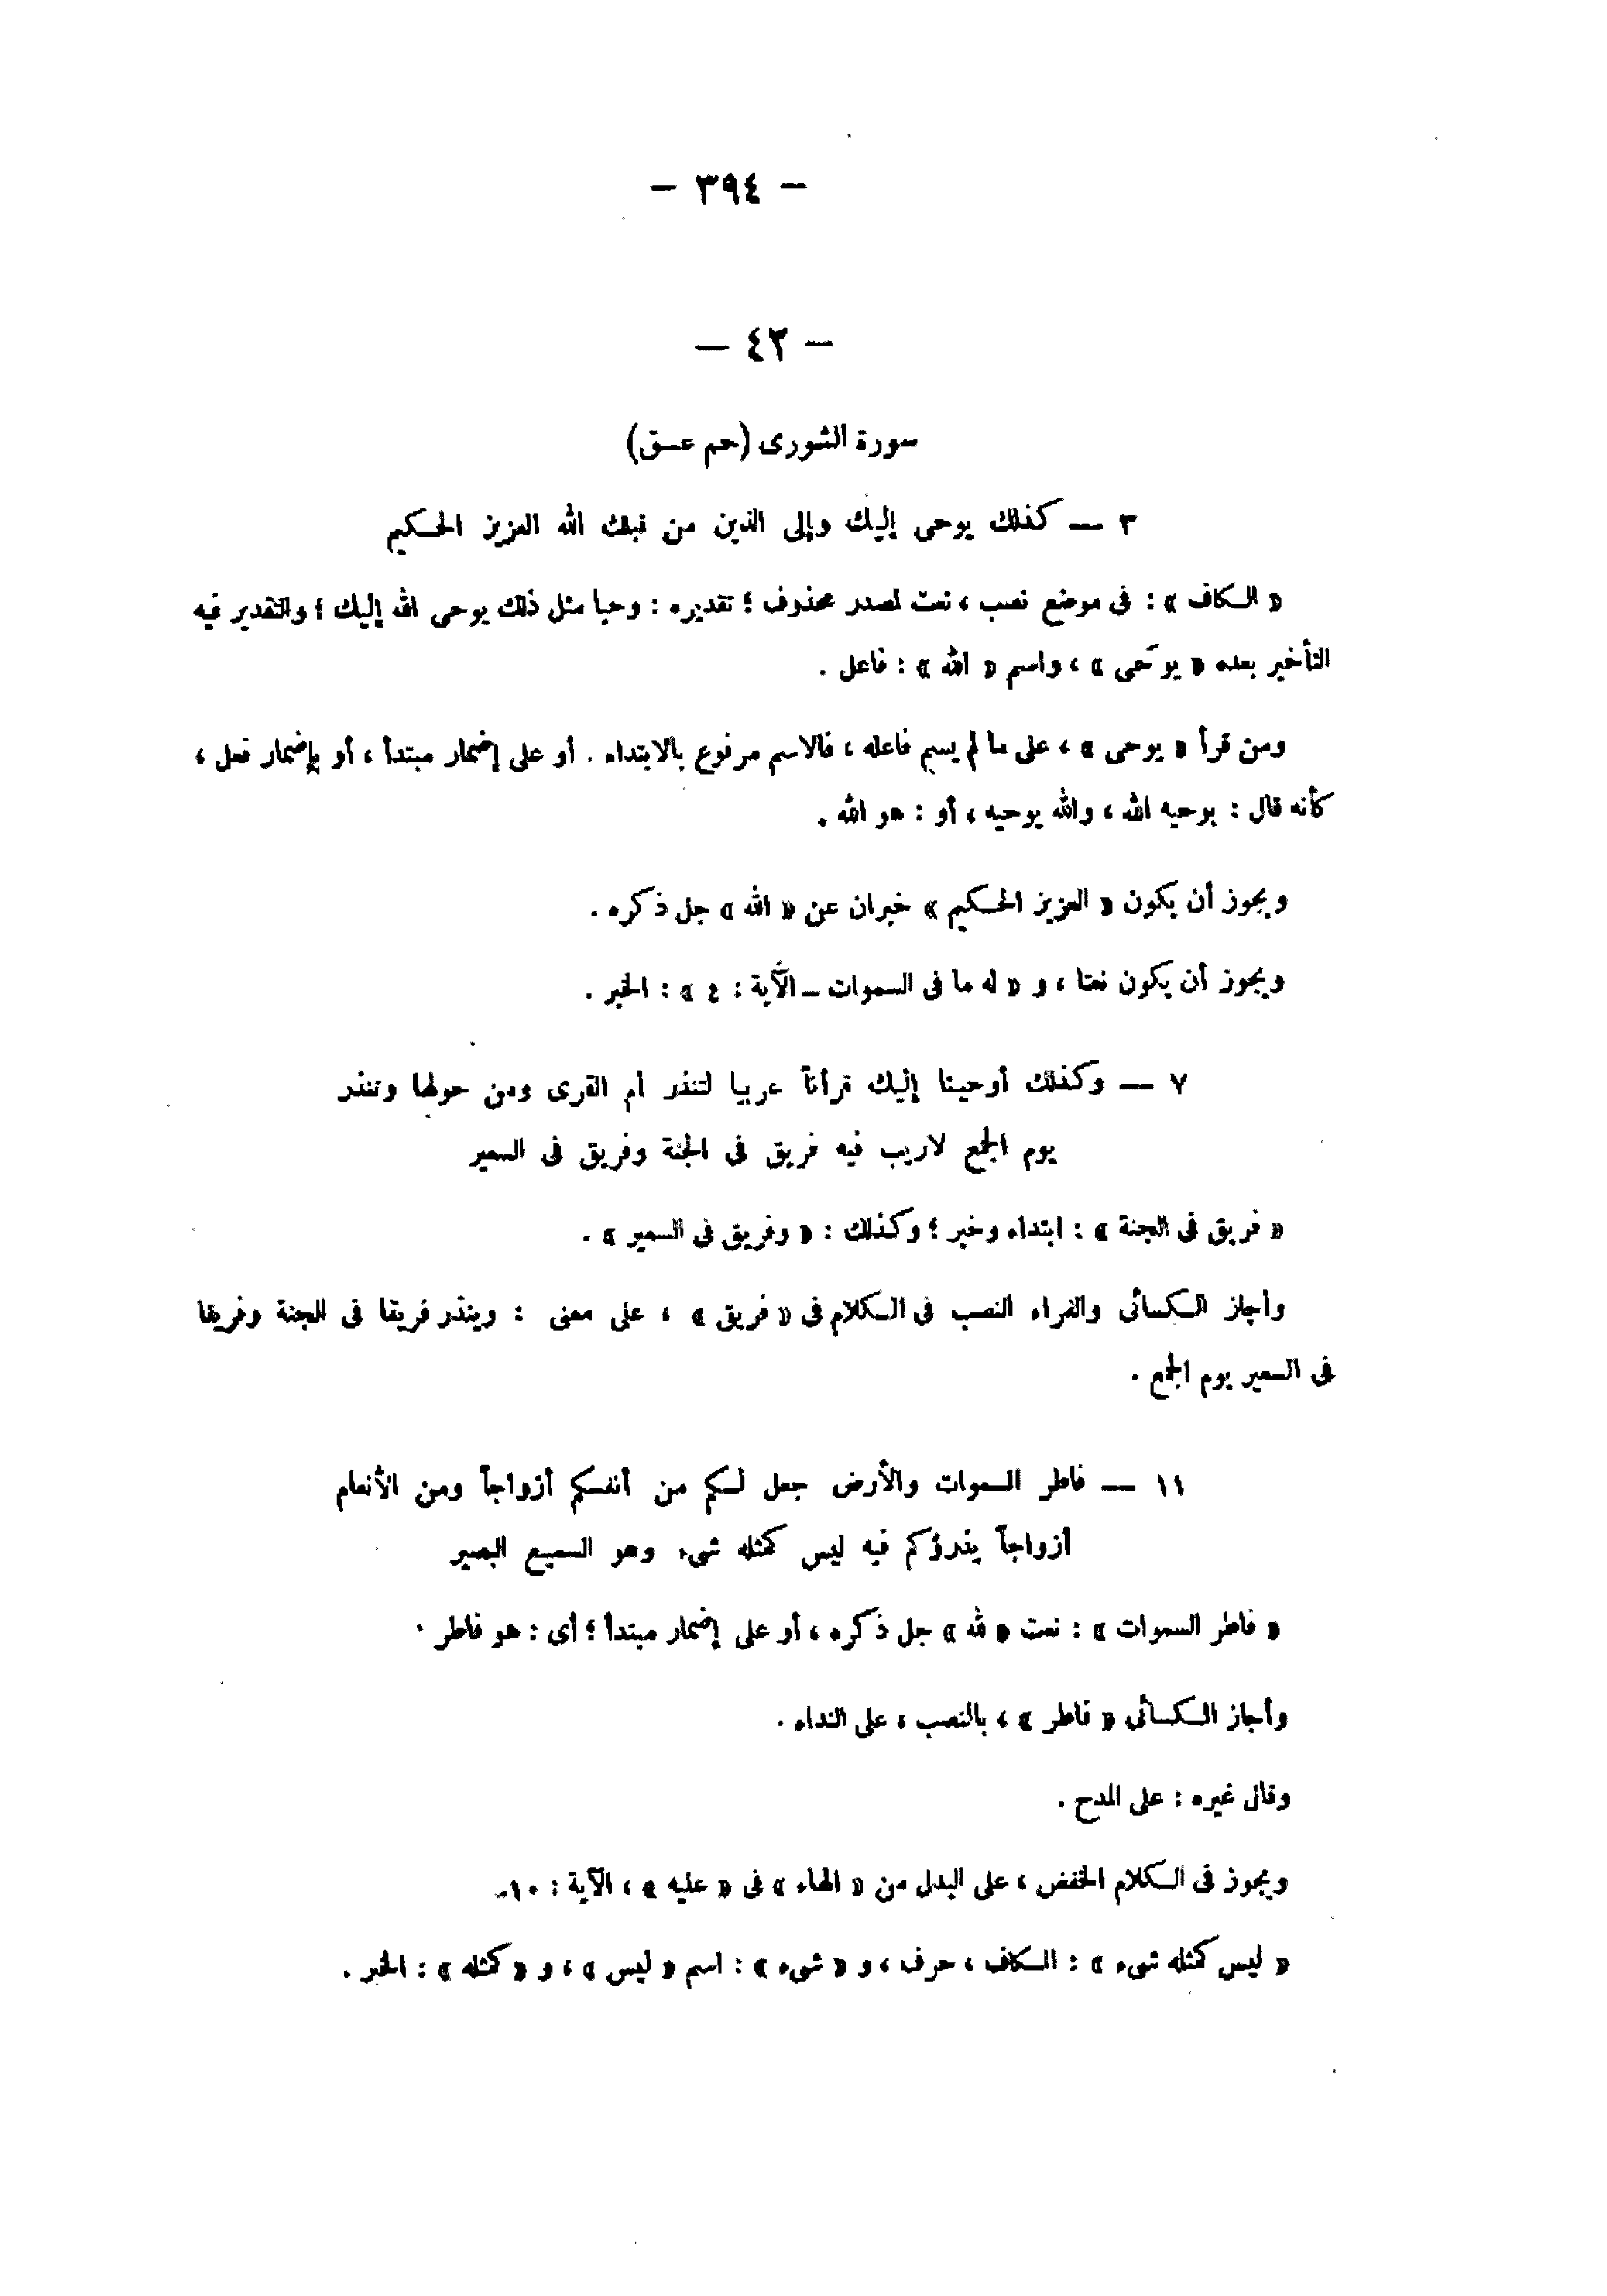 — ٣٩٤ —
— ٤٢ —
سورة الشورى (حم عسق)
٣ — كذلك يوحى إليك وإلى الذين من قبلك الله العزيز الحكيم
« الكاف » : فى موضع نصب ، نعت لمصدر محذوف ؛ تقديره : وحيا مثل ذلك يوحى الله إليك ؛ والتقدير فيه
التأخير بعده « يوحَى » ، واسم « الله » : فاعل .
ومن قرأ « يوحى » ، على ما لم يسم فاعله ، فالاسم مرفوع بالابتداء . أو على إضمار مبتدأ ، أو بإضمار فعل ،
كأنه قال : يوحيه الله ، والله يوحيه ، أو : هو الله .
ويجوز أن يكون « العزيز الحكيم » خبران عن « الله » جل ذكره .
ويجوز أن يكون نعتا ، و « له ما فى السموات – الآية : ٤ » : الخبر .
٧ — وكذلك أوحينا إليك قرآناً عربيا لتنذر أم القرى ومن حولها وتنذر
يوم الجمع لاريب فيه فريق فى الجنة وفريق فى السعير
« فريق فى الجنة » : ابتداء وخبر ؛ وكذلك : « وفريق فى السعير » .
وأجاز الكسائى والفراء النصب فى الكلام فى « فريق » ، على معنى : وينذر فريقا فى الجنة وفريقا
فى السعير يوم الجمع .
١١ — فاطر السموات والأرض جعل لكم من أنفسكم أزواجاً ومن الأنعام
أزواجاً يذرؤكم فيه ليس كمثله شىء وهو السميع البصير
« فاطر السموات » : نعت « لله » جل ذكره ، أو على إضمار مبتدأ ؛ أى : هو فاطر .
وأجاز الكسائى « فاطر » ، بالنصب ، على النداء .
وقال غيره : على المدح .
ويجوز فى الكلام الخفض ، على البدل من « الهاء » فى « عليه » ، الآية : ١٠.
« ليس كمثله شىء » : الكاف ، حرف ، و « شىء » : اسم « ليس » ، و « كمثله » : الخبر .